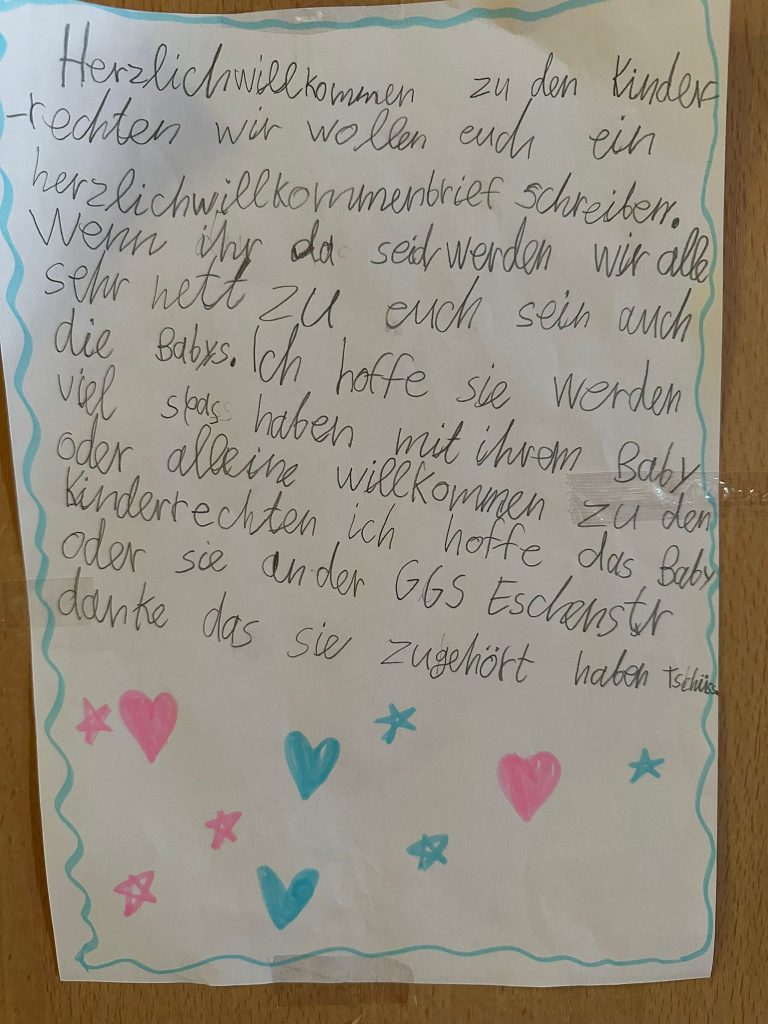 Herzlichwillkommen zu den Kinder-
-rechten wir wollen euch ein
herzlichwillkommenbrief schreiben.
Wenn ihr da seid werden wir alle
sehr nett zu euch sein auch
die Babys. Ich hoffe sie werden
viel spas haben mit ihrem Baby
oder alleine willkommen zu den
Kinderrechten ich hoffe das Baby
oder sie an der GGS Eschenstr
danke das sie zugehört haben tschüss